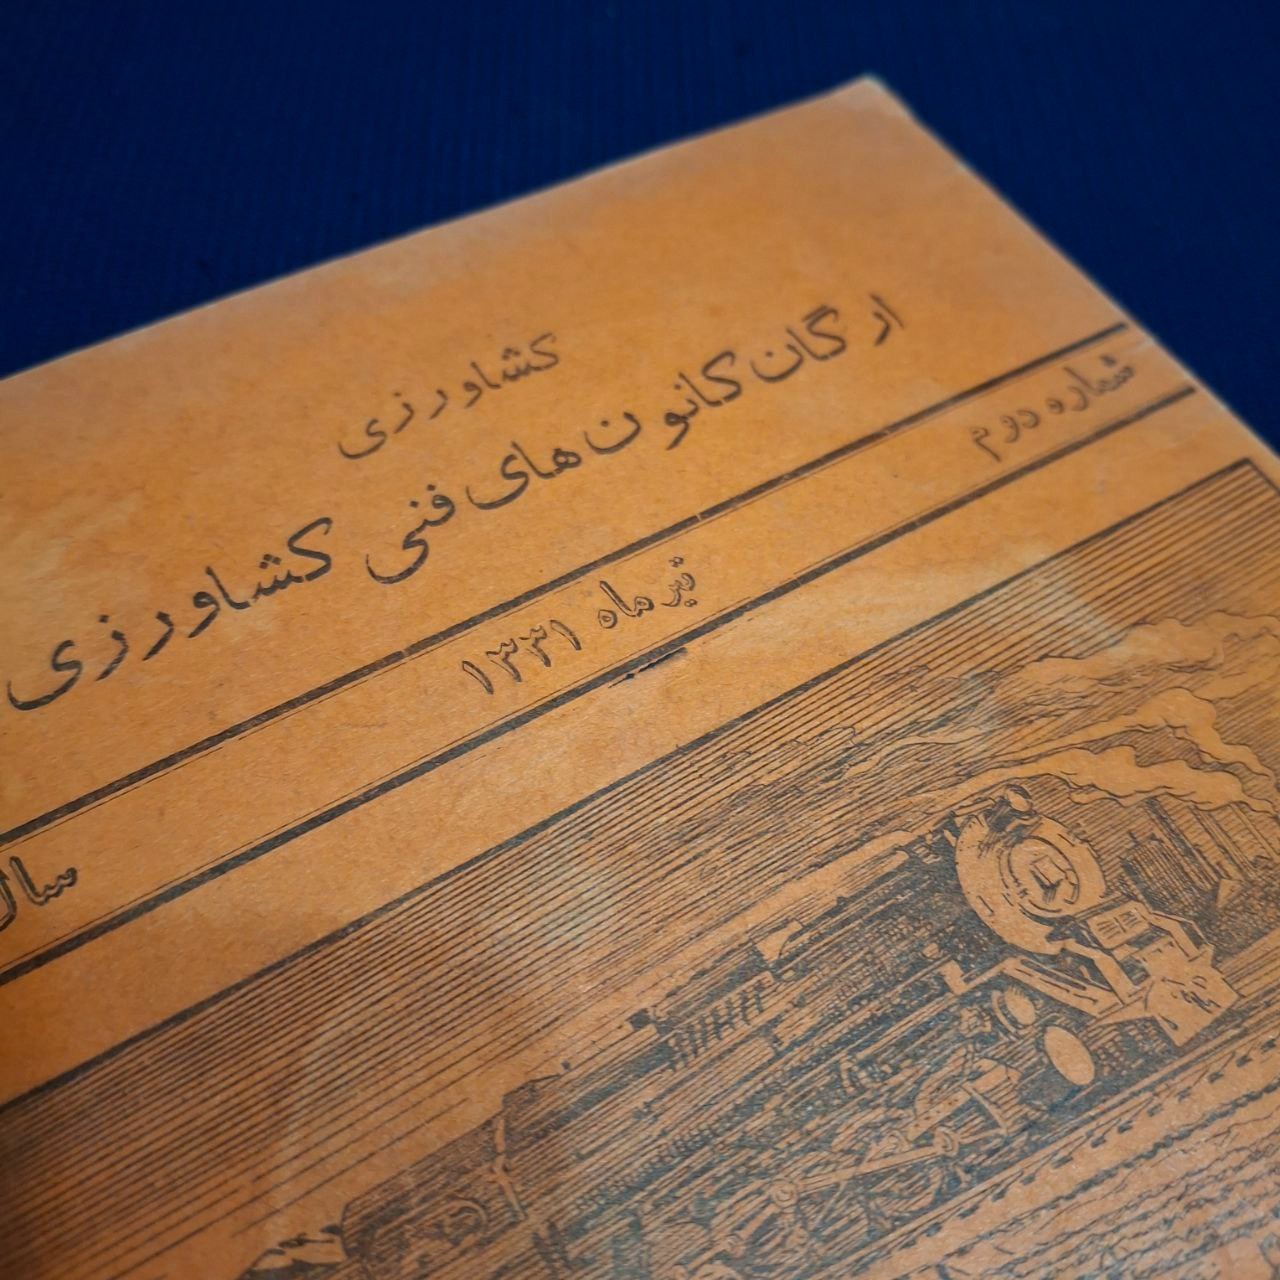 کشاورزی
ارگان کانون‌های فنی کشاورزی
شماره دوم
تیر ماه ۱۳۳۱
سال